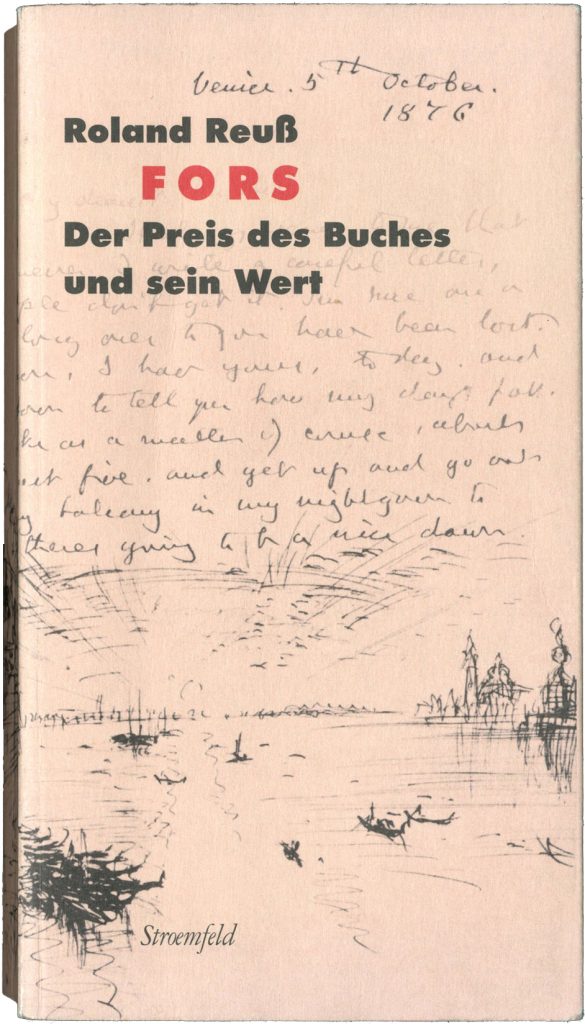 Venice. 5th October.
1876
Roland Reuß
FORS
that
Der Preis des Buches
I write a careful letter,
und sein Wert
ple don't get it. I'm sure one or
long ones to you have been lost.
I have yours, to day. and
to tell you how my days
as a matter of course, about
five. and get up and go out
balcony in my nightgown to
theres going to be a nice dawn.
Stroemfeld